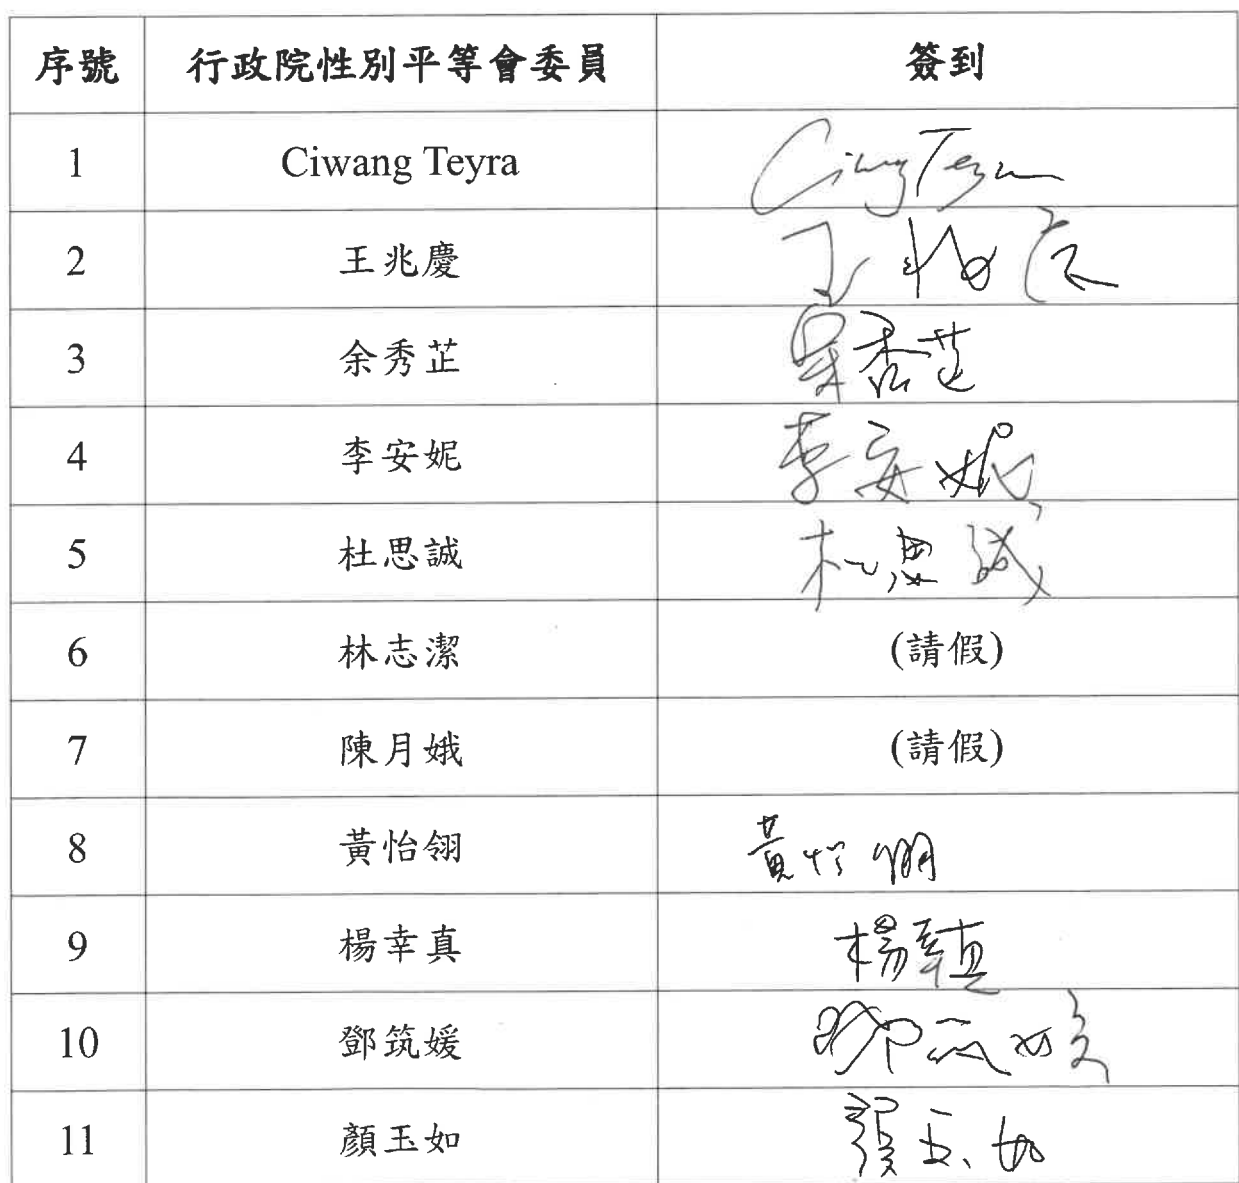 序號 行政院性別平等會委員 簽到
1 Ciwang Teyra Ciwang Teyra
2 王兆慶 王兆慶
3 余秀芷 余秀芷
4 李安妮 李安妮
5 杜思誠 杜思誠
6 林志潔 (請假)
7 陳月娥 (請假)
8 黃怡翎 黃怡翎
9 楊幸真 楊幸真
10 鄧筑媛 鄧筑媛
11 顏玉如 顏玉如